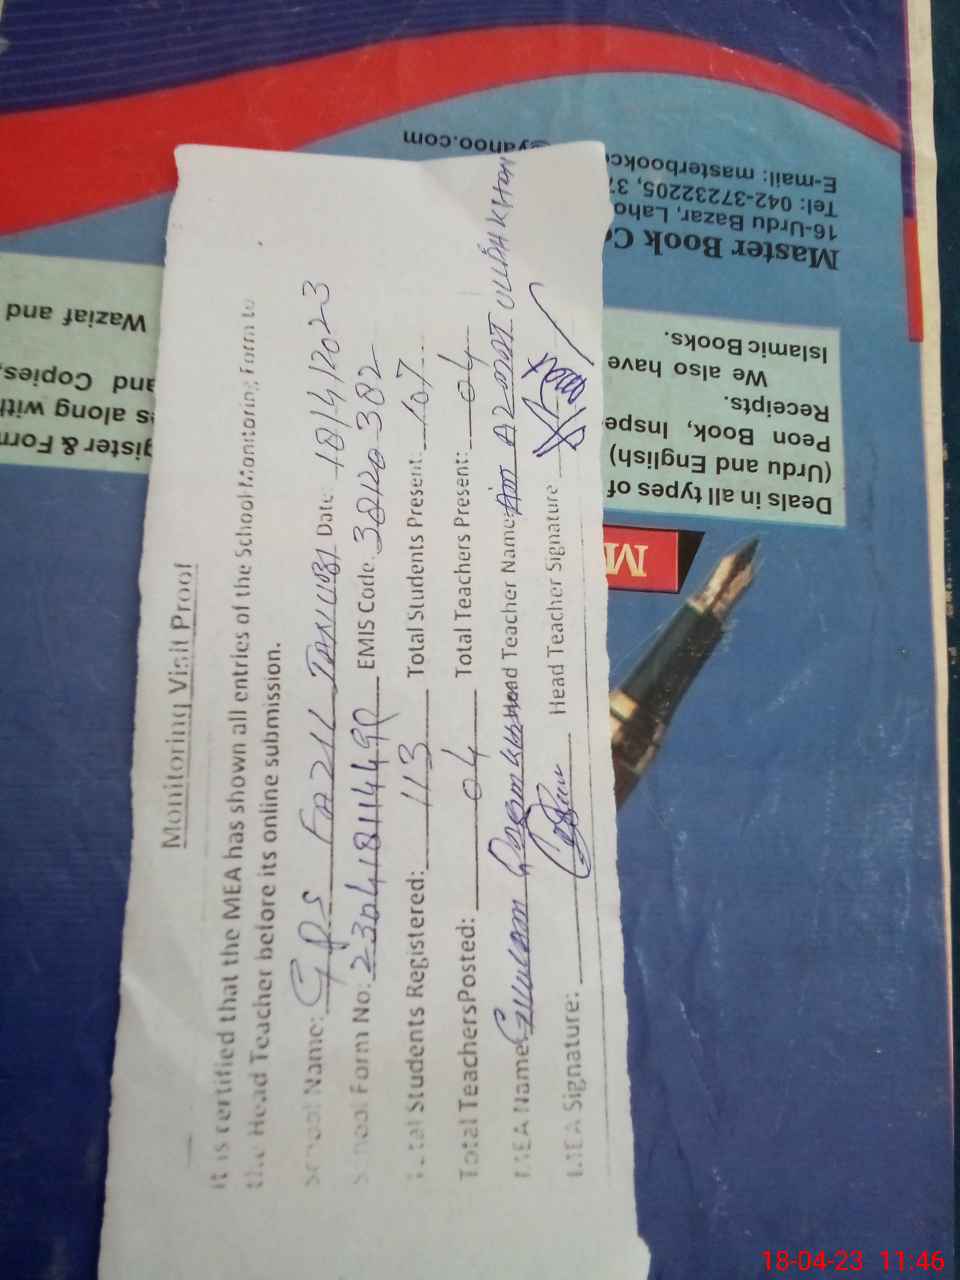 Monitoring Visit Proof
It is certified that the MEA has shown all entries of the School Monitoring Form to
the Head Teacher before its online submission.
School Name: GPS Fazil Date: 18/4/2023
School Form No: 23041811449 EMIS Code: 38120382
Total Students Registered: 113 Total Students Present: 107
Total TeachersPosted: 04 Total Teachers Present: 04
MEA Name: Ghulam Head Teacher Name: Azmat Ullah Khan
MEA Signature: Head Teacher Signature
@yahoo.com
E-mail: masterbookco
Tel: 042-37232205, 37
16-Urdu Bazar, Laho
Master Book C
Waziaf and
and Copies,
s along with
gister & Form
Deals in all types of
(Urdu and English)
Peon Book, Inspe
Receipts.
We also have
Islamic Books.
M
18-04-23 11:46